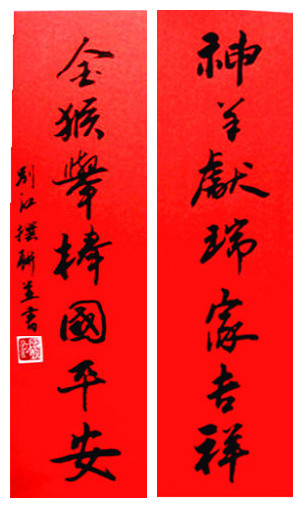 神羊獻瑞家吉祥
金猴舉棒國平安
刘江撰聯並書